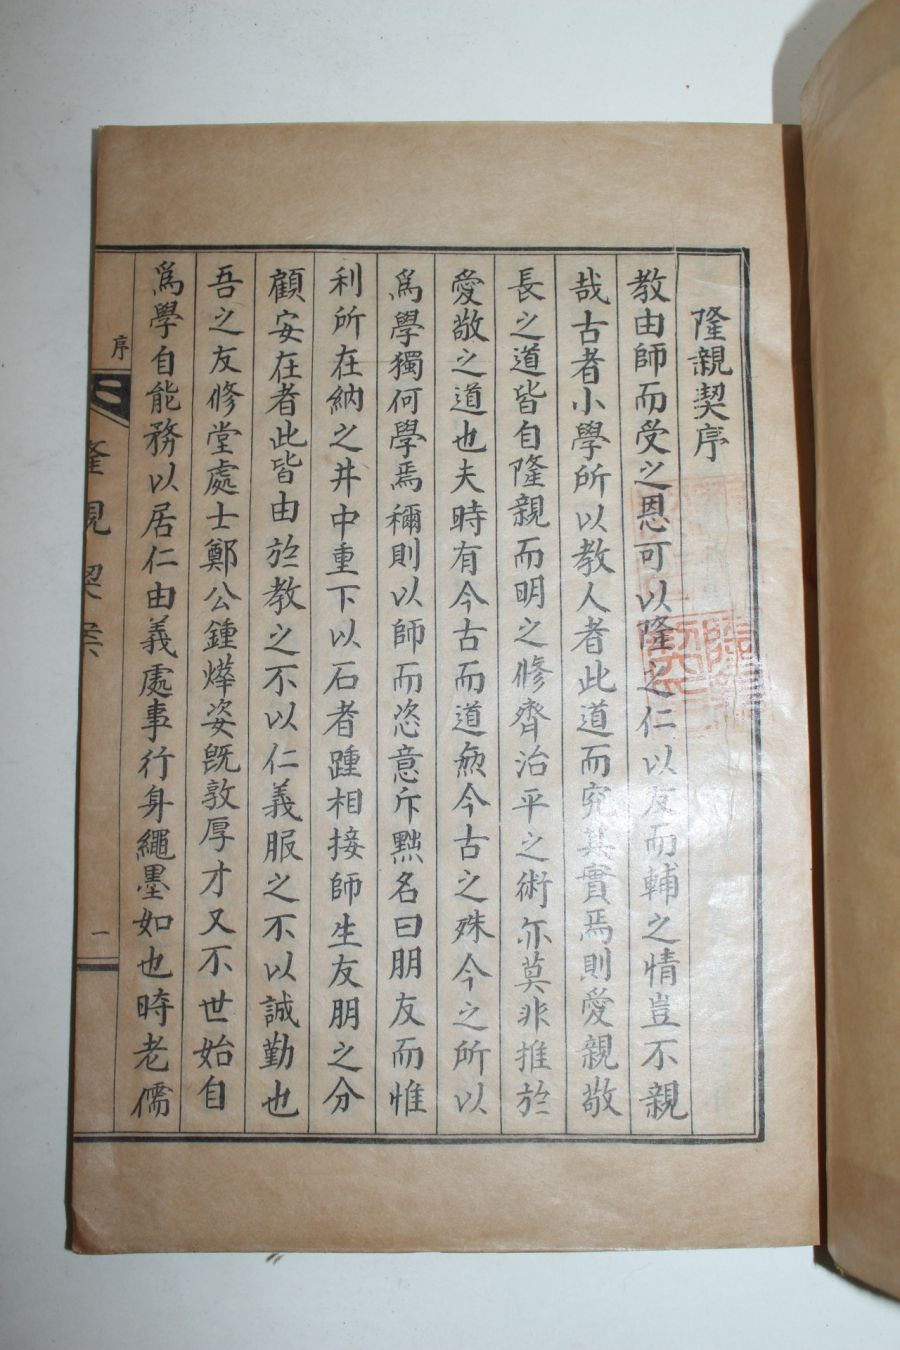 隆親契序
教由師而受之恩可以隆之仁以友而輔之情豈不親
哉古者小學所以教人者此道而究其實焉則愛親敬
長之道皆自隆親而明之修齊治平之術亦莫非推於
愛敬之道也夫時有今古而道無今古之殊今之所以
爲學獨何學焉禰則以師而恣意斥黜名曰朋友而惟
利所在納之井中重下以石者踵相接師生友朋之分
顧安在者此皆由於教之不以仁義服之不以誠勤也
吾之友修堂處士鄭公鍾燁姿旣敦厚才又不世始自
爲學自能務以居仁由義處事行身繩墨如也時老儒
序
隆親契案
一